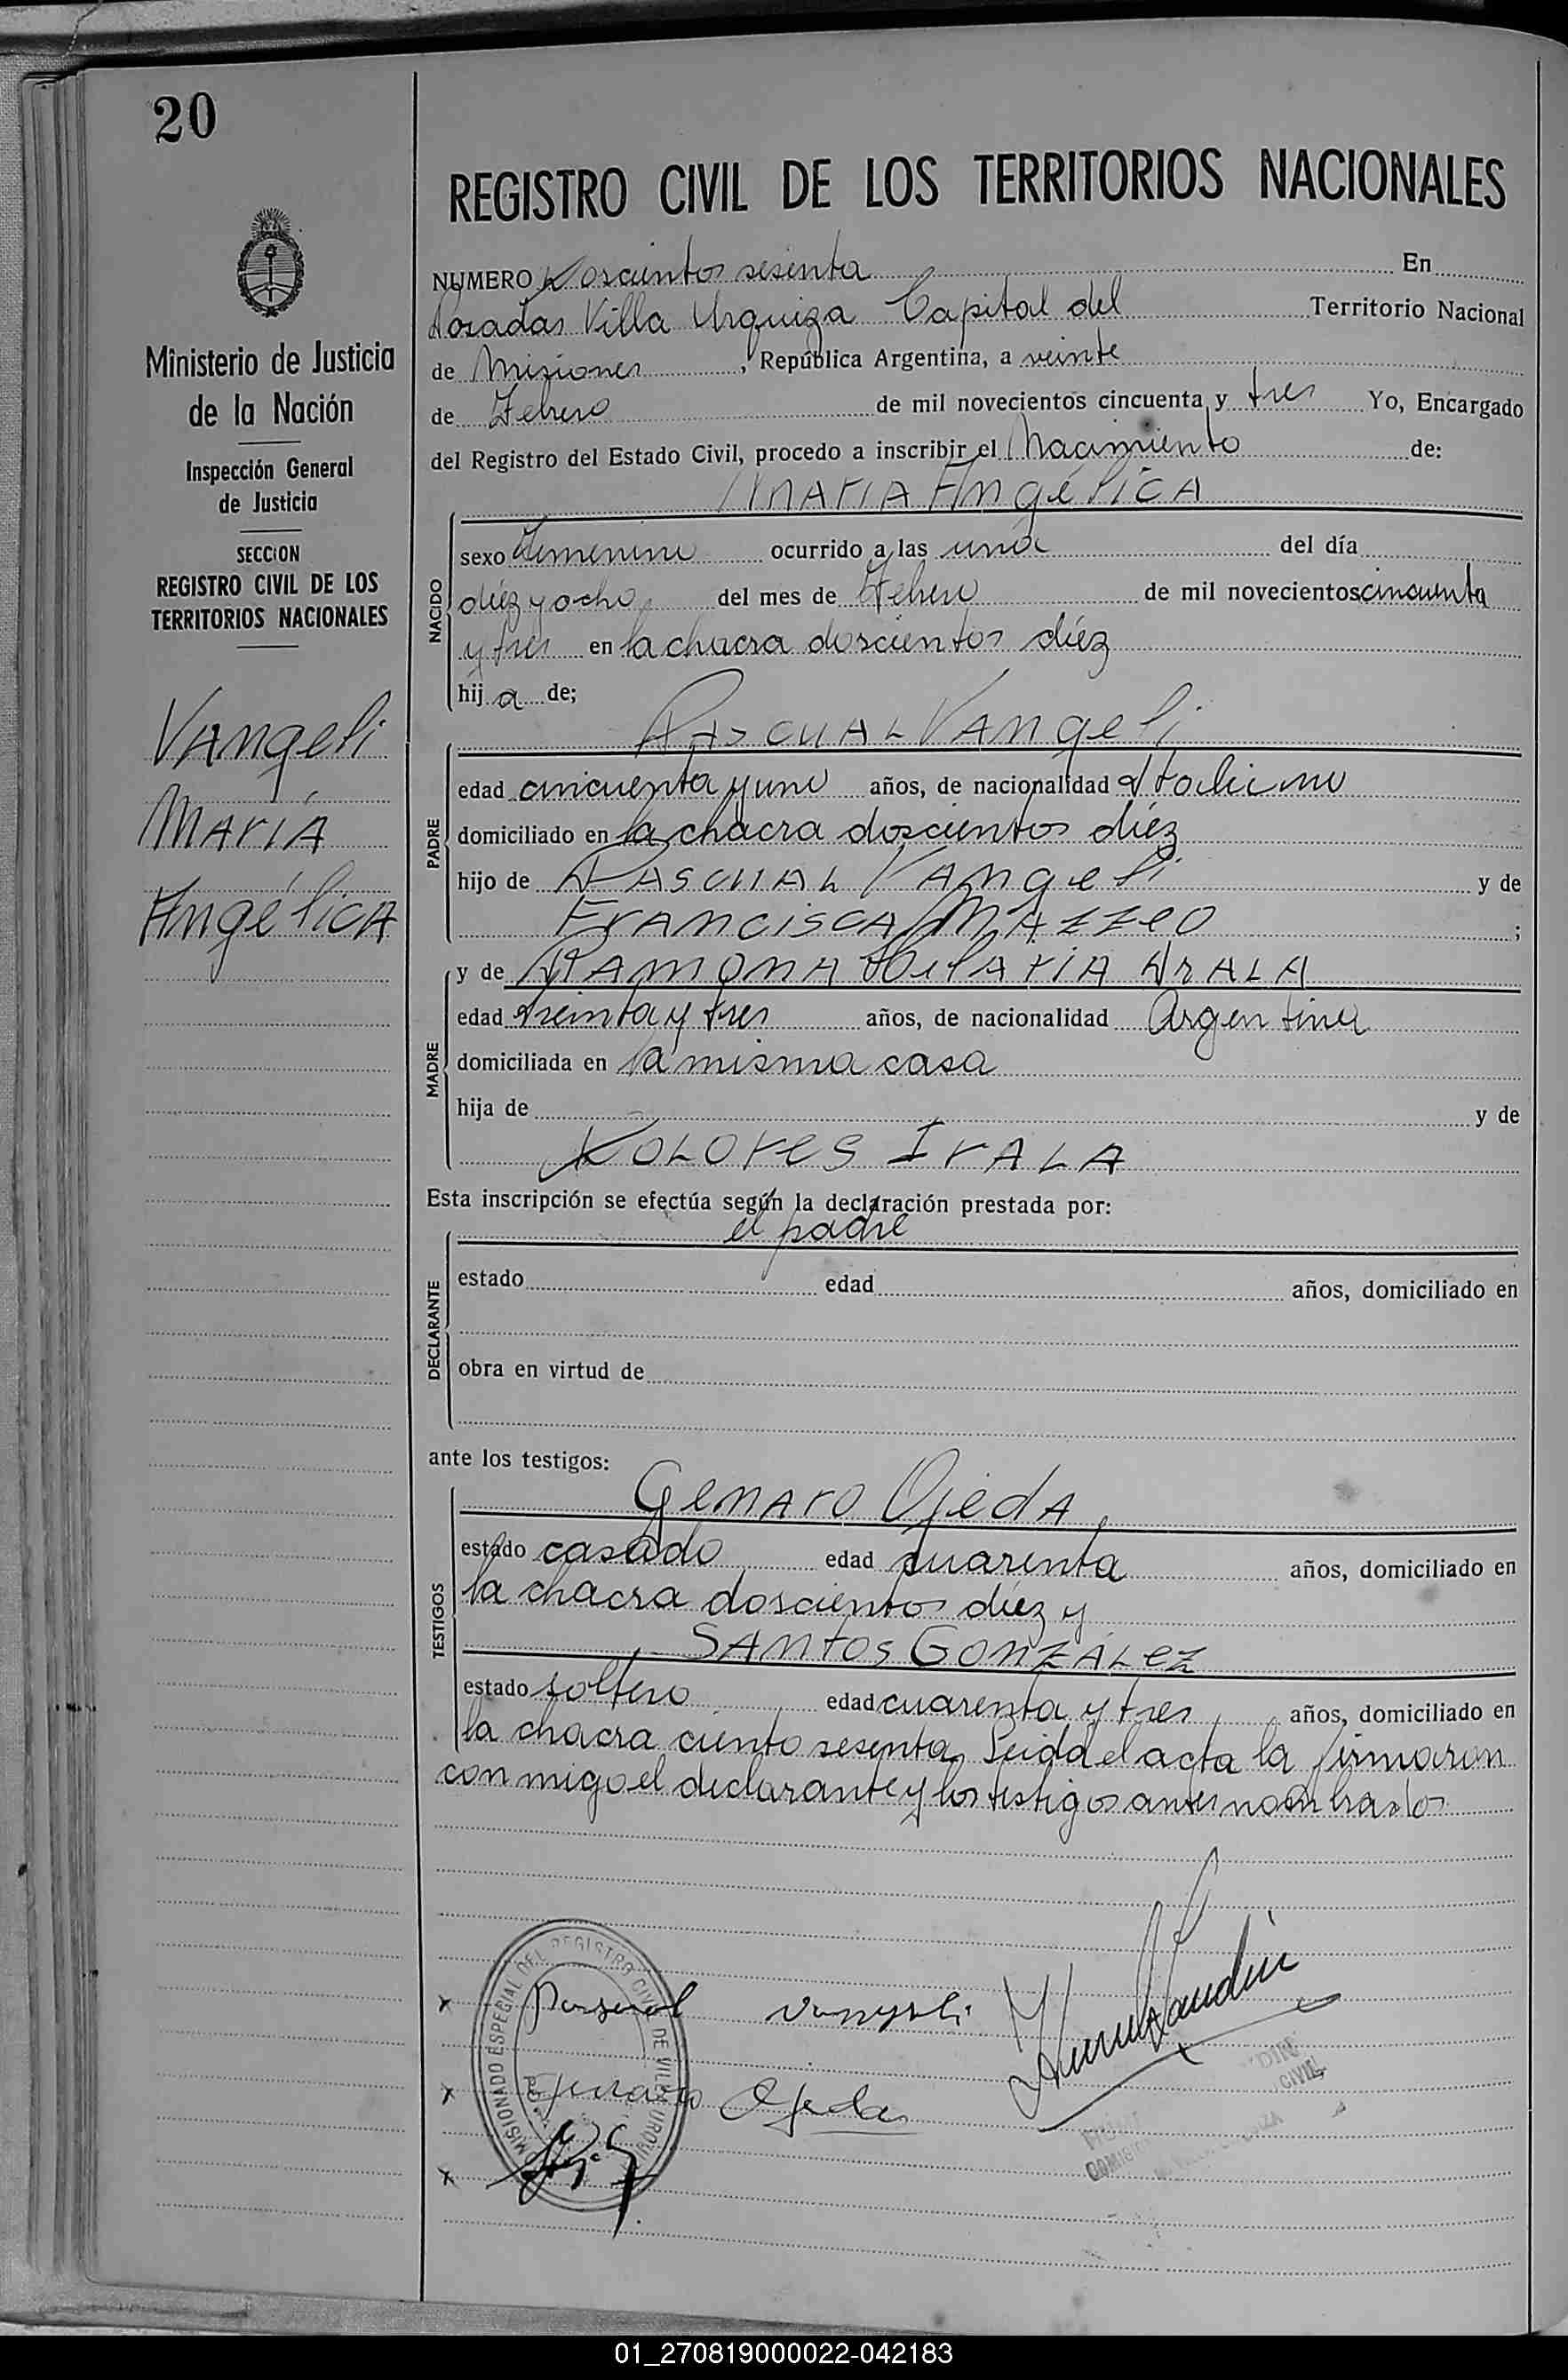 20
REGISTRO CIVIL DE LOS TERRITORIOS NACIONALES
Ministerio de Justicia
de la Nación
Inspección General
de Justicia
SECCION
REGISTRO CIVIL DE LOS
TERRITORIOS NACIONALES
Vangeli
María
Angélica
NUMERO Doscientos sesenta En
Posadas Villa Urquiza Capital del Territorio Nacional
de Misiones, República Argentina, a veinte
de Febrero de mil novecientos cincuenta y tres Yo, Encargado
del Registro del Estado Civil, procedo a inscribir el Nacimiento de:
María Angélica
NACIDO
sexo Femenino ocurrido a las una del día
diéz y ocho del mes de Febrero de mil novecientos cincuenta
y tres en la chacra doscientos diéz
hija de;
Pascual Vangeli
PADRE
edad cincuenta y uno años, de nacionalidad Italiano
domiciliado en la chacra doscientos diéz
hijo de Pascual Vangeli y de
Francisca Mazzeo ;
MADRE
y de Ramona Hilaria Irala
edad treinta y tres años, de nacionalidad Argentina
domiciliada en la misma casa
hija de y de
Dolores Irala
Esta inscripción se efectúa según la declaración prestada por:
el padre
DECLARANTE
estado edad años, domiciliado en
obra en virtud de
ante los testigos:
Genaro Ojeda,
TESTIGOS
estado casado edad cuarenta años, domiciliado en
la chacra doscientos diéz y
Santos González
estado soltero edad cuarenta y tres años, domiciliado en
la chacra ciento sesenta. Leida el acta la firmaron
conmigo el declarante y los testigos antes nombrados
x Pascual Vangeli
x Genaro Ojeda
x
COMISIONADO ESPECIAL DEL REGISTRO CIVIL DE VILLA URQUIZA
CIVIL
01_270819000022-042183